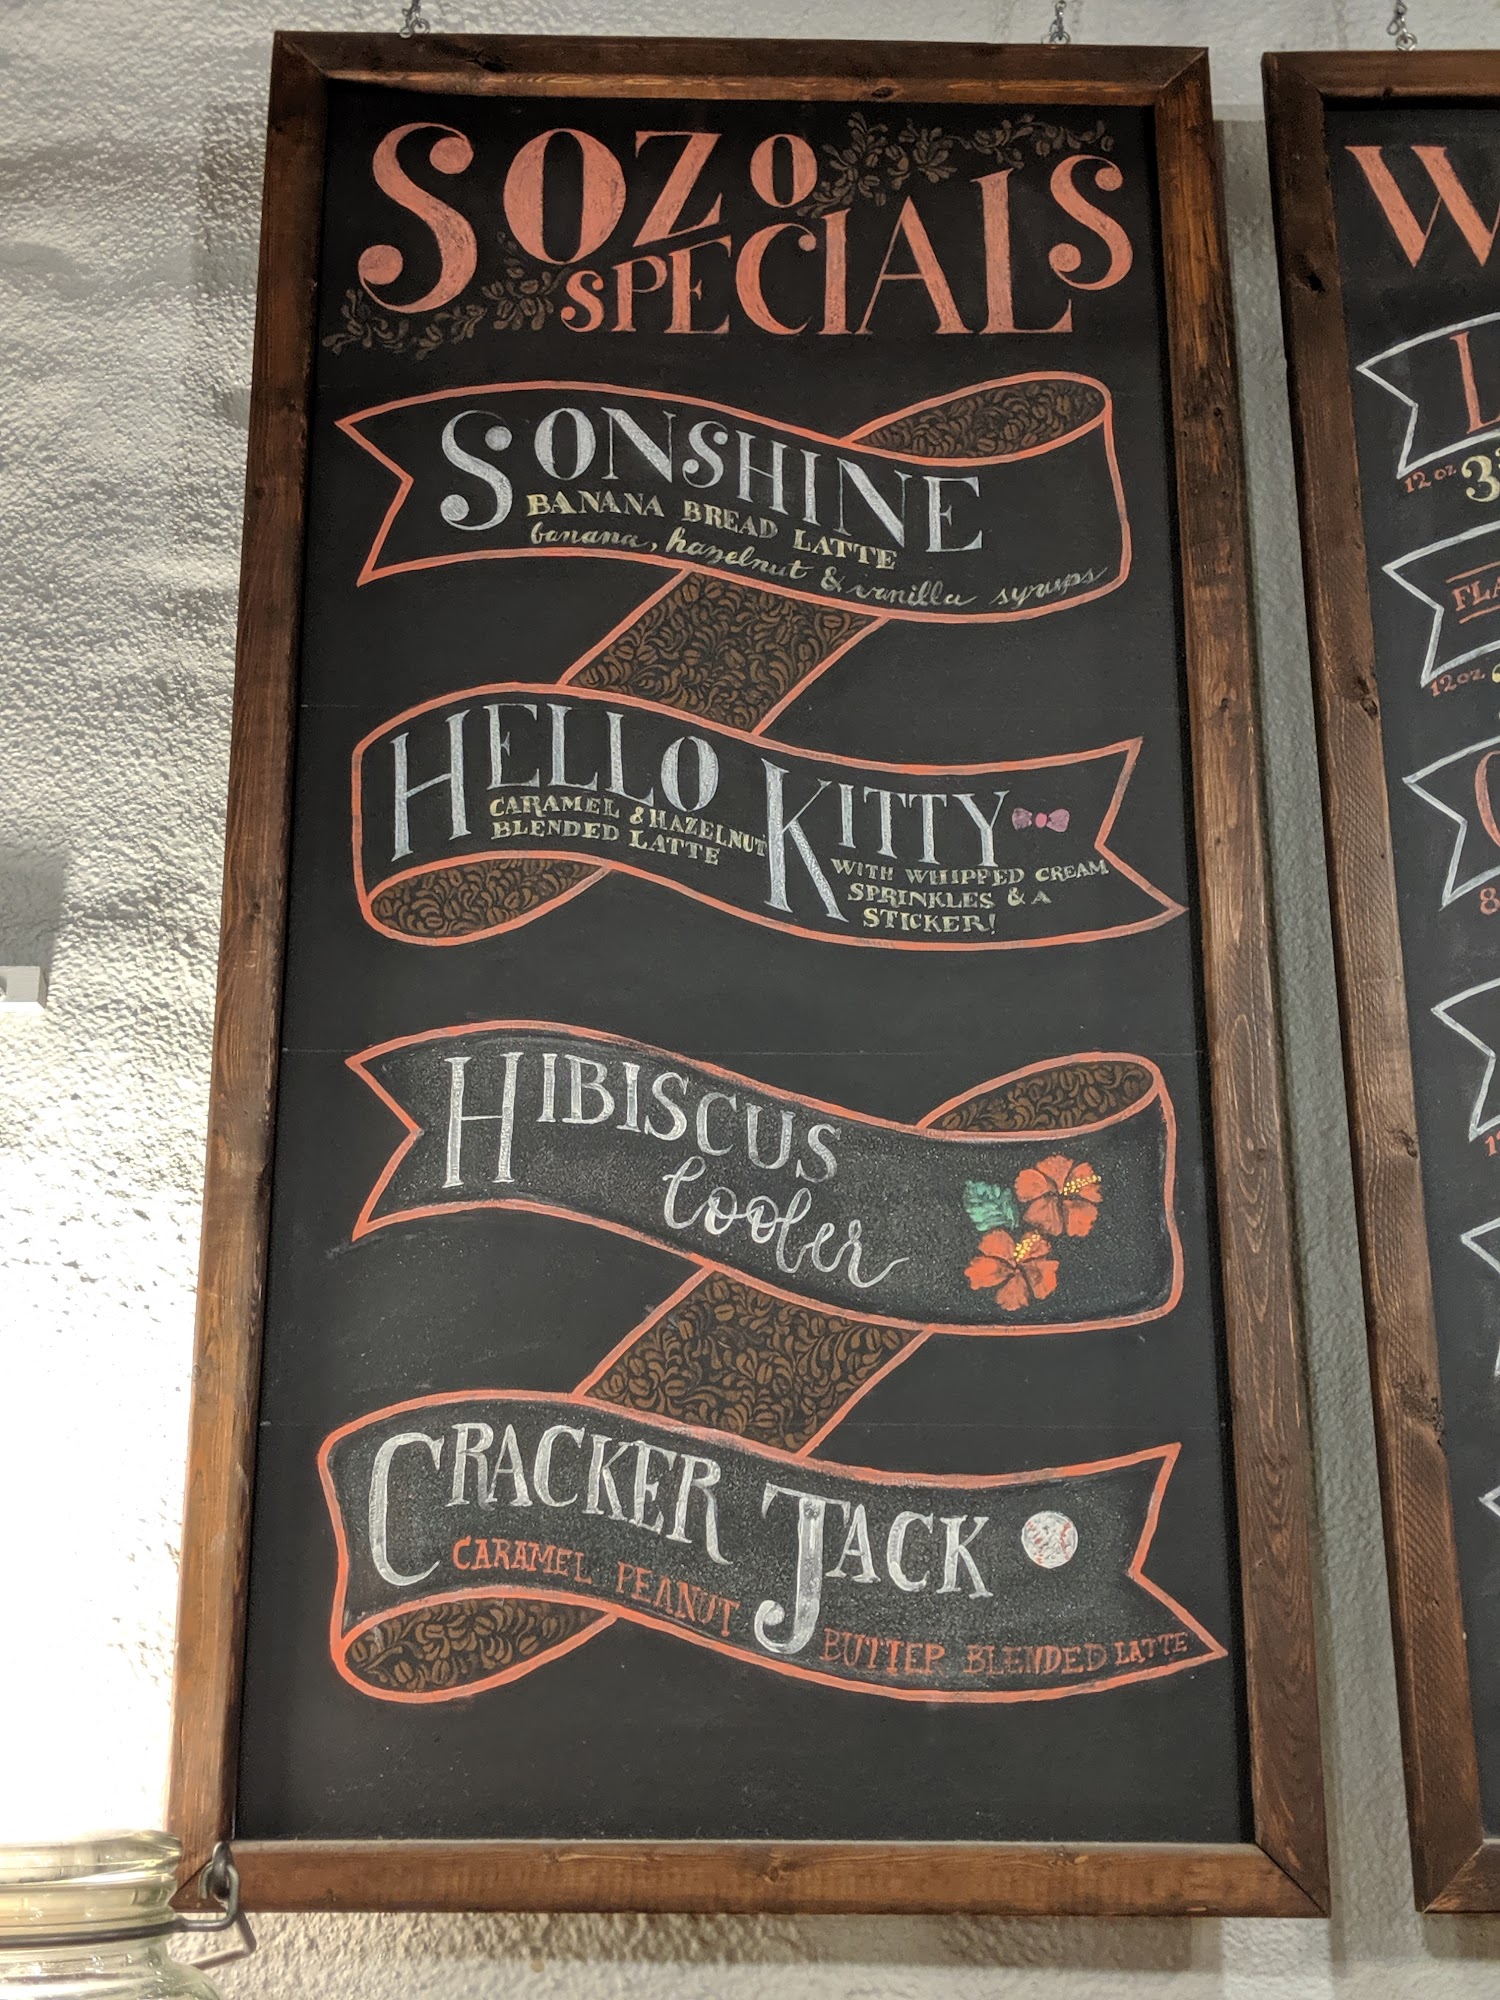 SOZO
SPECIALS
SONSHINE
BANANA BREAD LATTE
banana, hazelnut & vanilla syrups
HELLO KITTY
CARAMEL & HAZELNUT
BLENDED LATTE
WITH WHIPPED CREAM
SPRINKLES & A
STICKER!
HIBISCUS
Cooler
CRACKER JACK
CARAMEL PEANUT BUTTER BLENDED LATTE
W
12 oz
FLA
12 oz